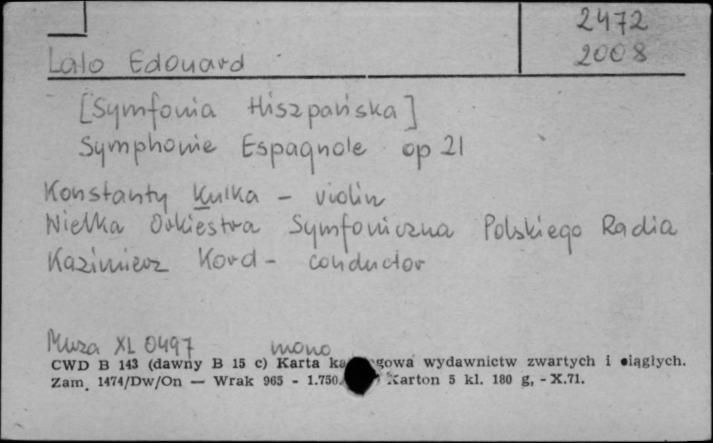 2472
2008
Lalo Edouard
[Symfonia Hiszpańska]
Symphonie Espagnole op 21
Konstanty Kulka - violin
Wielka Orkiestra Symfoniczna Polskiego Radia
Kazimierz Kord - conductor
Muza XL 0497 mono
CWD B 143 (dawny B 15 c) Karta ka gowa wydawnictw zwartych i ciągłych.
Zam. 1474/Dw/On — Wrak 965 - 1.750. Karton 5 kl. 180 g, - X.71.